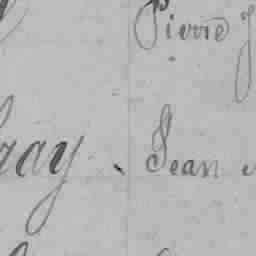 Pierre J
ray . Jean